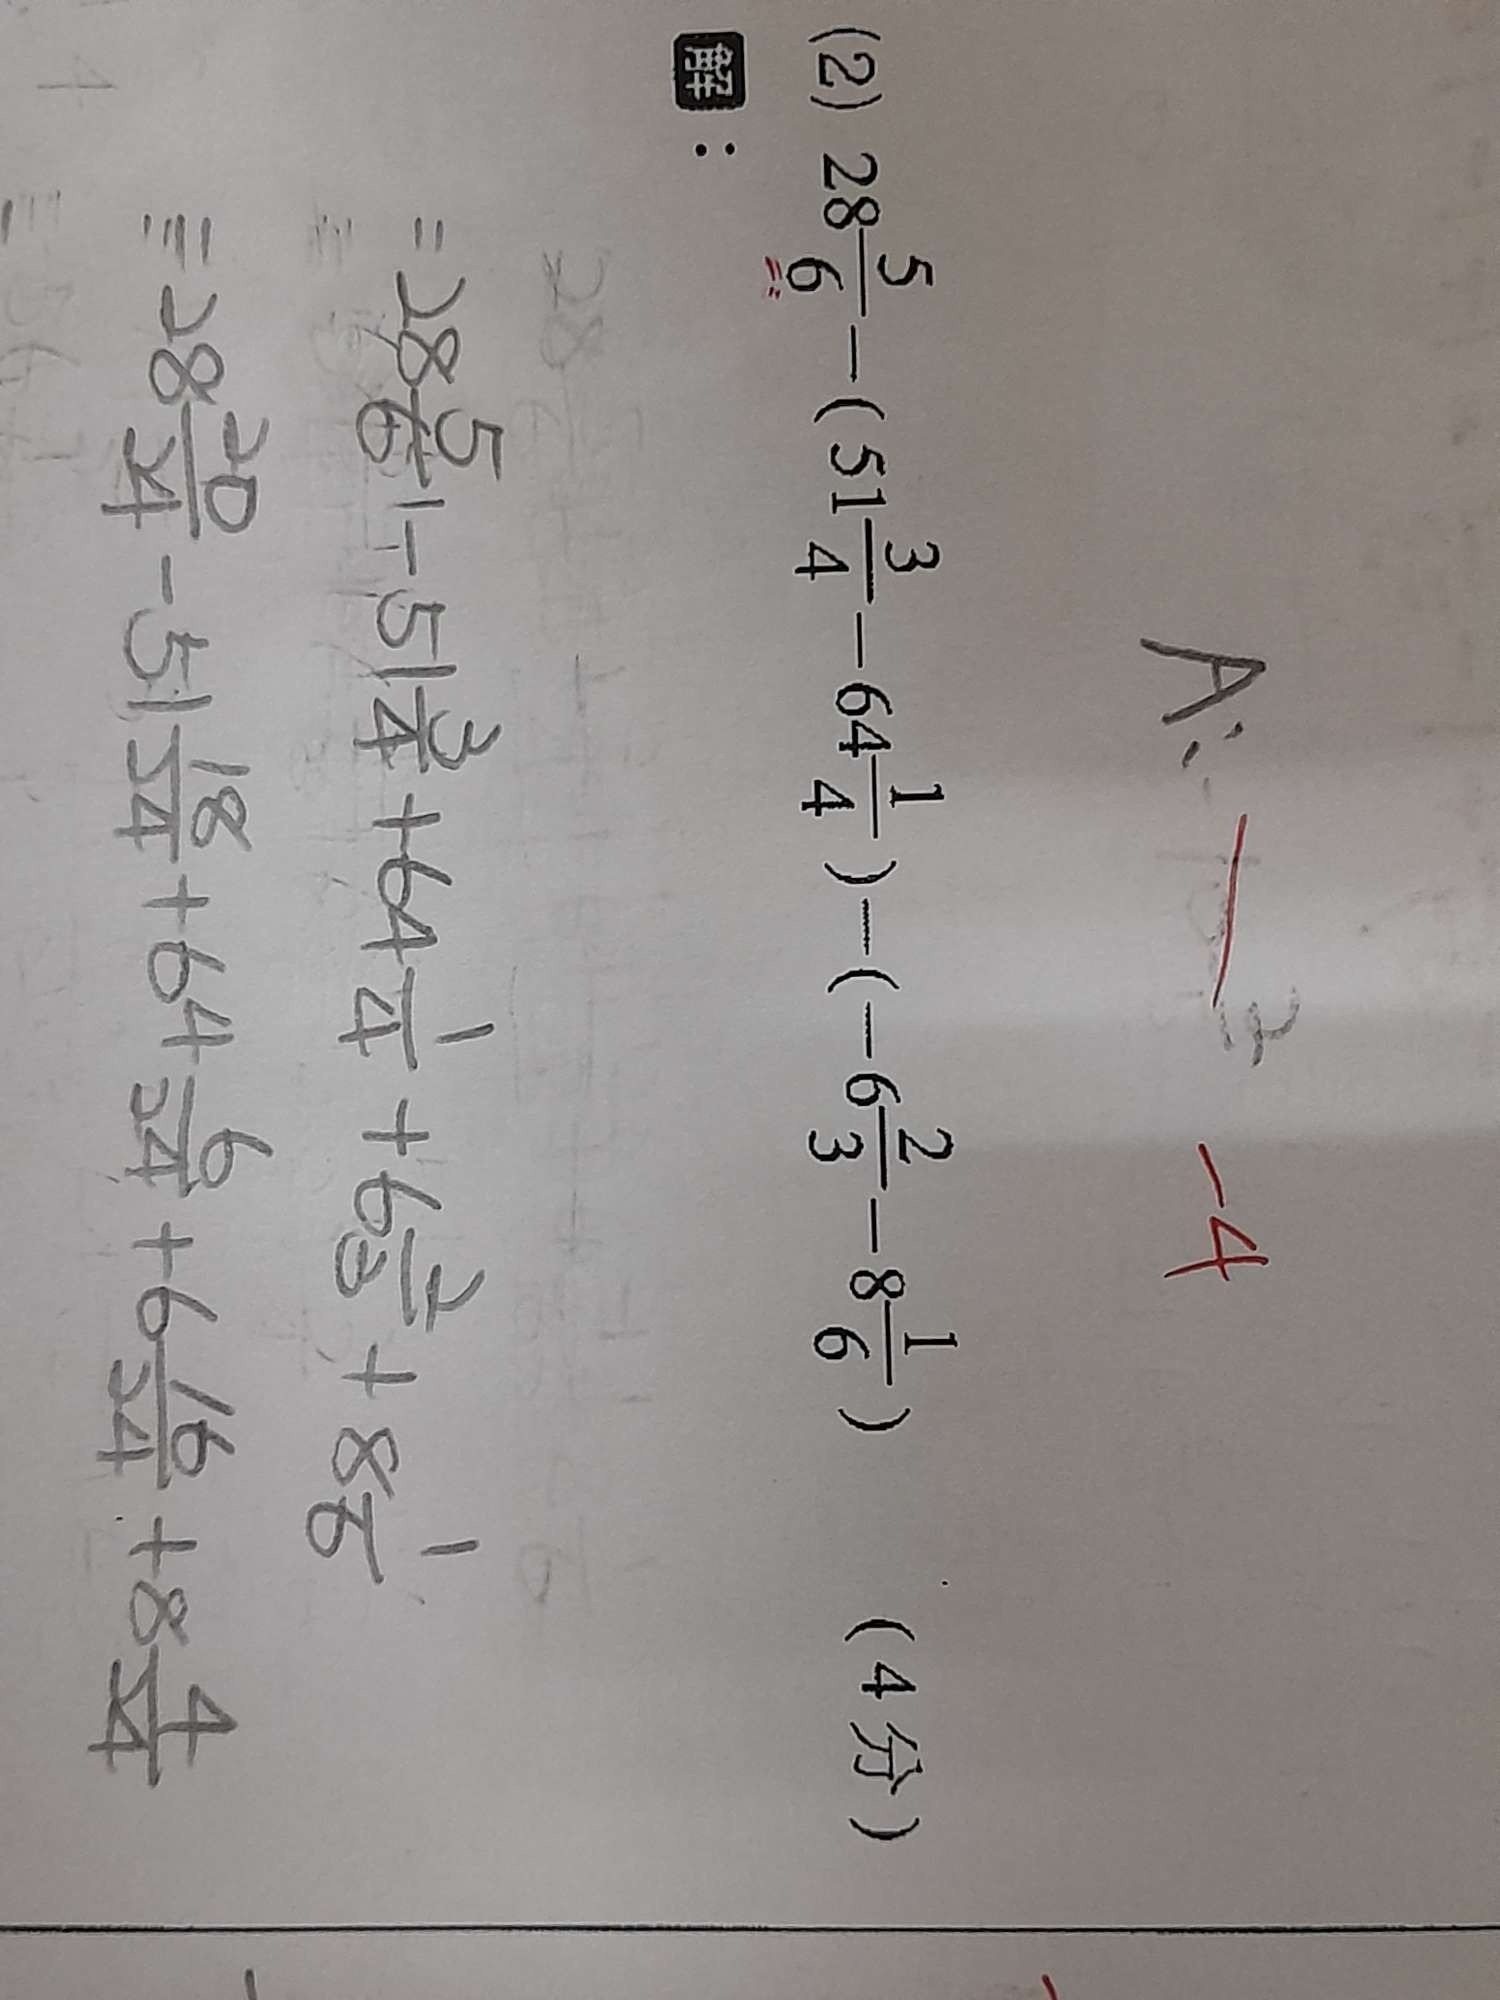 A: -4
(2) 28 5/6 - (51 3/4 - 64 1/4) - (-6 2/3 - 8 1/6) (4分)
解:
= 28 5/6 - 51 3/4 + 64 1/4 + 6 2/3 + 8 1/6
= 28 20/24 - 51 18/24 + 64 6/24 + 6 16/24 + 8 4/24